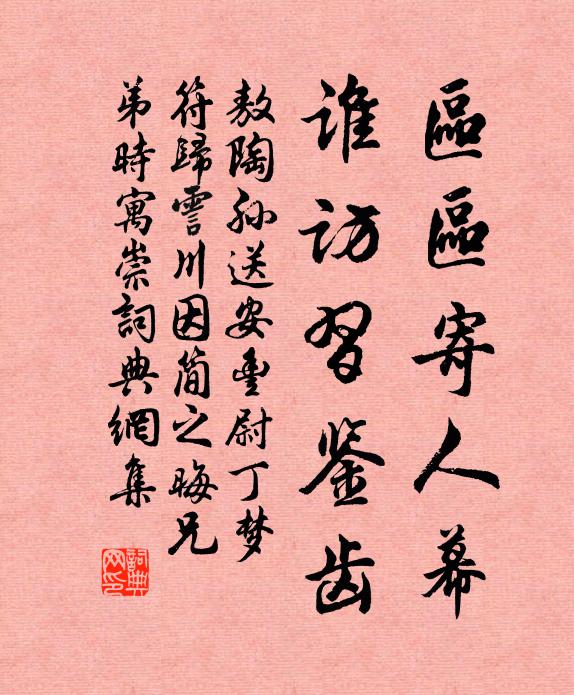 區區寄人幕
誰訪習鉴齿
敖陶孙送安豊尉丁梦
符歸霅川因简之晦兄
弟時寓崇詞典網集
詞典網印